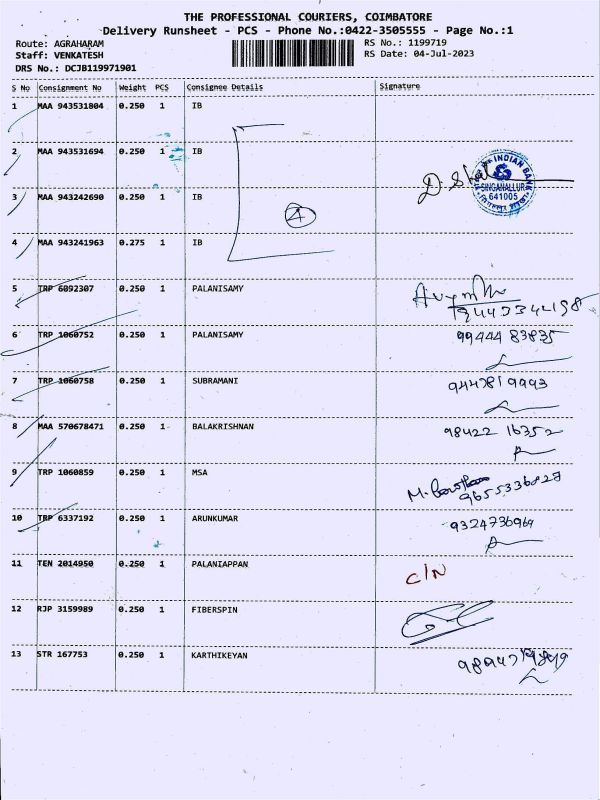 THE PROFESSIONAL COURIERS, COIMBATORE
Delivery Runsheet - PCS - Phone No.:0422-3505555 - Page No.:1
Route: AGRAHARAM RS No.: 1199719
Staff: VENKATESH RS Date: 04-Jul-2023
DRS No.: DCJB119971901
S No Consignment No Weight PCS Consignee Details Signature
1 MAA 943531804 0.250 1 IB
2 MAA 943531694 0.250 1 IB
INDIAN BANK
SINGANALLUR
641005
3 MAA 943242690 0.250 1 IB
4
4 MAA 943241963 0.275 1 IB
5 TRP 6092307 0.250 1 PALANISAMY
6 TRP 1060752 0.250 1 PALANISAMY 99444 83835
7 TRP 1060758 0.250 1 SUBRAMANI
8 MAA 570678471 0.250 1 BALAKRISHNAN 98422 16352
9 TRP 1060859 0.250 1 MSA
10 TRP 6337192 0.250 1 ARUNKUMAR 9324736969
11 TEN 2014950 0.250 1 PALANIAPPAN C/N
12 RJP 3159989 0.250 1 FIBERSPIN
13 STR 167753 0.250 1 KARTHIKEYAN